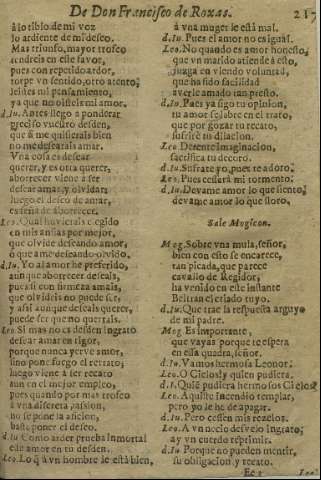 De Don Francisco de Roxas.
217
à lo tiblo de mi voz
lo ardiente de mi desco.
Mas triunfo, mayor trofeo
tendreis en este favor,
pues con repetido ardor,
torpe vn sentido, otro atento,
leisles mi pensamiento,
ya que no oisteis mi amor.
d.Iu. Antes llego a ponderar
preciso vuestro desden,
que à me quisierais bien
no me dexarais amar.
Vna cosa es desear
querer, y es otra querer,
aborrecer viene a ser
desear amar, y olvidar:
luego el deseo de amar,
es seña de aborrecer.
Leo. Qual huvierais elegido
en mis ansias por mejor,
que olvide deseando amor,
ò que ame deseando olvido.
d.Iu. Yo al amor he preferido,
aun que aborrecer deseais,
pues si con firmeza amais,
que olvideis no puede ser,
y assi aunque deseais querer,
puede ser que no querrais.
Leo. Si mas no es desden ingrato
desear amar en rigor,
porque nunca yerve amor,
sino pone fuego el retrato;
luego viene a ser recato
aun en el mejor empleo,
pues quando por mas trofeo
à vna discreta passion,
no se pone la aficion,
basta poner el deseo.
d.Iu. Como arder prueba inmortal
este amor en tu desden.
Leo. Lo q̃ à vn hombre le està bien,
à vna muger le està mal.
d.Iu. Pues el amor no es igual.
Leo. No quando es amor honesto,
que vn marido atiende à esto,
juzga en viendo voluntad,
que ha sido facilidad
averle amado tan presto.
d.Iu. Pues ya sigo tu opinion,
tu amor se labre en el trato,
que por gozar tu recato,
sufriré tu dilacion.
Leo. Detente imaginacion,
sacrifica tu decoro.
d.Iu. Sufrate yo, pues te adoro.
Leo. Pues cessarà mi tormento.
d.Iu. Devame amor lo que siento,
devame amor lo que lloro.
Sale Mogicon.
Mog. Sobre vna mula, señor,
bien con esto se encarece,
tan picada, que parece
cavallo de Regidor,
ha venido en este instante
Beltran el criado tuyo.
d.Iu. Que trae la respuesta arguyo
de mi padre.
Mog. Es importante,
que vayas porque te espera
en essa quadra, señor.
d.Iu. Vamos hermosa Leonor:
Leo. O Cielos! y quien pudiera.
d.Iu. Quiè pudiera hermosos Cielos
Leo. Aquiste Incendio templar,
pero yo le he de apagar.
d.Iu. Pero cessen mis rezelos.
Leo. A vn necio desvelo ingrato;
ay vn cuerdo reprimir.
d.Iu. Porque no pueden mentir,
su obligacion, y recato.
Ee 2
Leo.